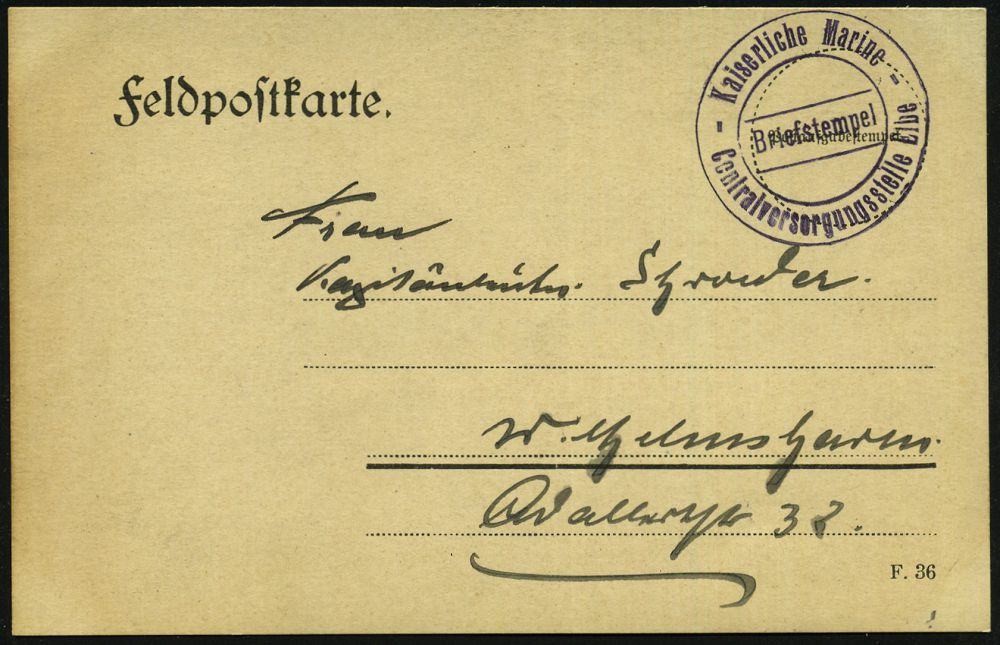 Feldpostkarte.
- Kaiserliche Marine -
Centralversorgungsstelle Elbe
Briefstempel
Frau
Schroeder.
Wilhelmshaven.
Adalbertstr 32.
F. 36